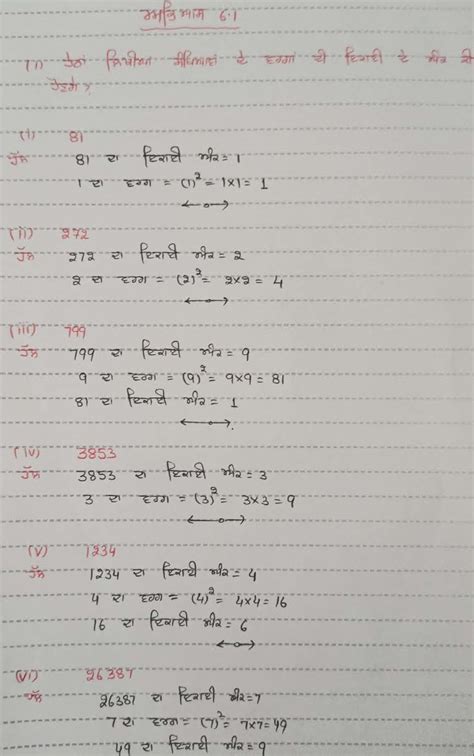 ਅਭਿਆਸ 6.1
(1) ਹੇਠਾਂ ਲਿਖੀਆਂ ਸੰਖਿਆਵਾਂ ਦੇ ਵਰਗਾਂ ਦੀ ਇਕਾਈ ਦੇ ਅੰਕ ਕੀ
ਹੋਣਗੇ?
(i) 81
ਹੱਲ 81 ਦਾ ਇਕਾਈ ਅੰਕ = 1
1 ਦਾ ਵਰਗ = (1)² = 1×1 = 1
(ii) 272
ਹੱਲ 272 ਦਾ ਇਕਾਈ ਅੰਕ = 2
2 ਦਾ ਵਰਗ = (2)² = 2×2 = 4
(iii) 799
ਹੱਲ 799 ਦਾ ਇਕਾਈ ਅੰਕ = 9
9 ਦਾ ਵਰਗ = (9)² = 9×9 = 81
81 ਦਾ ਇਕਾਈ ਅੰਕ = 1
(iv) 3853
ਹੱਲ 3853 ਦਾ ਇਕਾਈ ਅੰਕ = 3
3 ਦਾ ਵਰਗ = (3)² = 3×3 = 9
(v) 1234
ਹੱਲ 1234 ਦਾ ਇਕਾਈ ਅੰਕ = 4
4 ਦਾ ਵਰਗ = (4)² = 4×4 = 16
16 ਦਾ ਇਕਾਈ ਅੰਕ = 6
(vi) 26387
ਹੱਲ 26387 ਦਾ ਇਕਾਈ ਅੰਕ = 7
7 ਦਾ ਵਰਗ = (7)² = 7×7 = 49
49 ਦਾ ਇਕਾਈ ਅੰਕ = 9